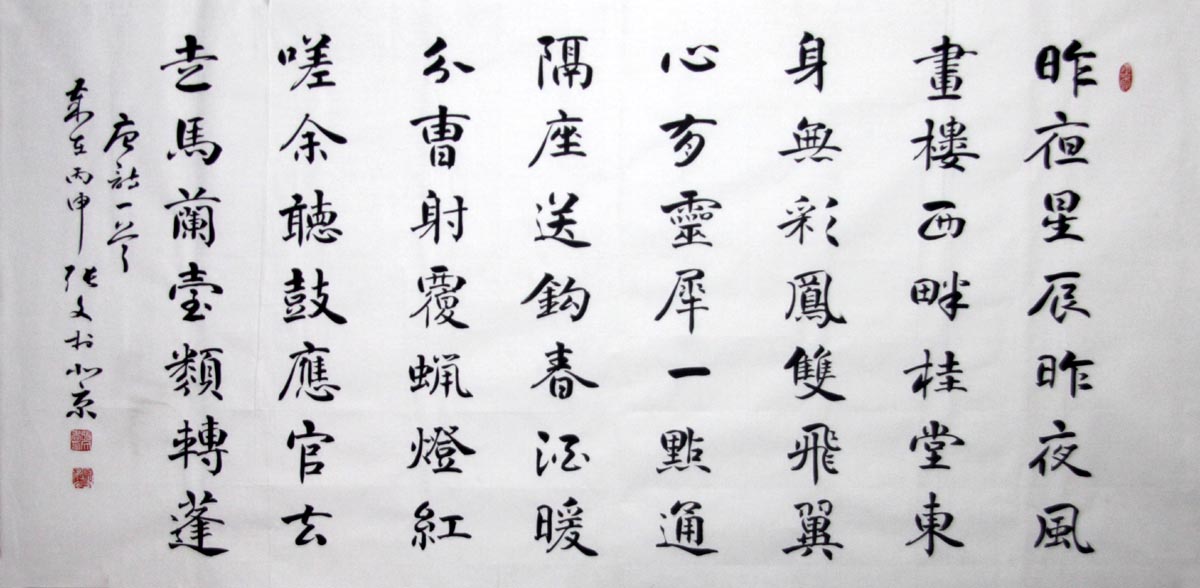 昨夜星辰昨夜風
畫樓西畔桂堂東
身無彩鳳雙飛翼
心有靈犀一點通
隔座送鈎春酒暖
分曹射覆蜡燈紅
嗟余聽鼓應官去
走馬蘭臺類轉蓬
唐詩一首
歲在丙申 張文於北京